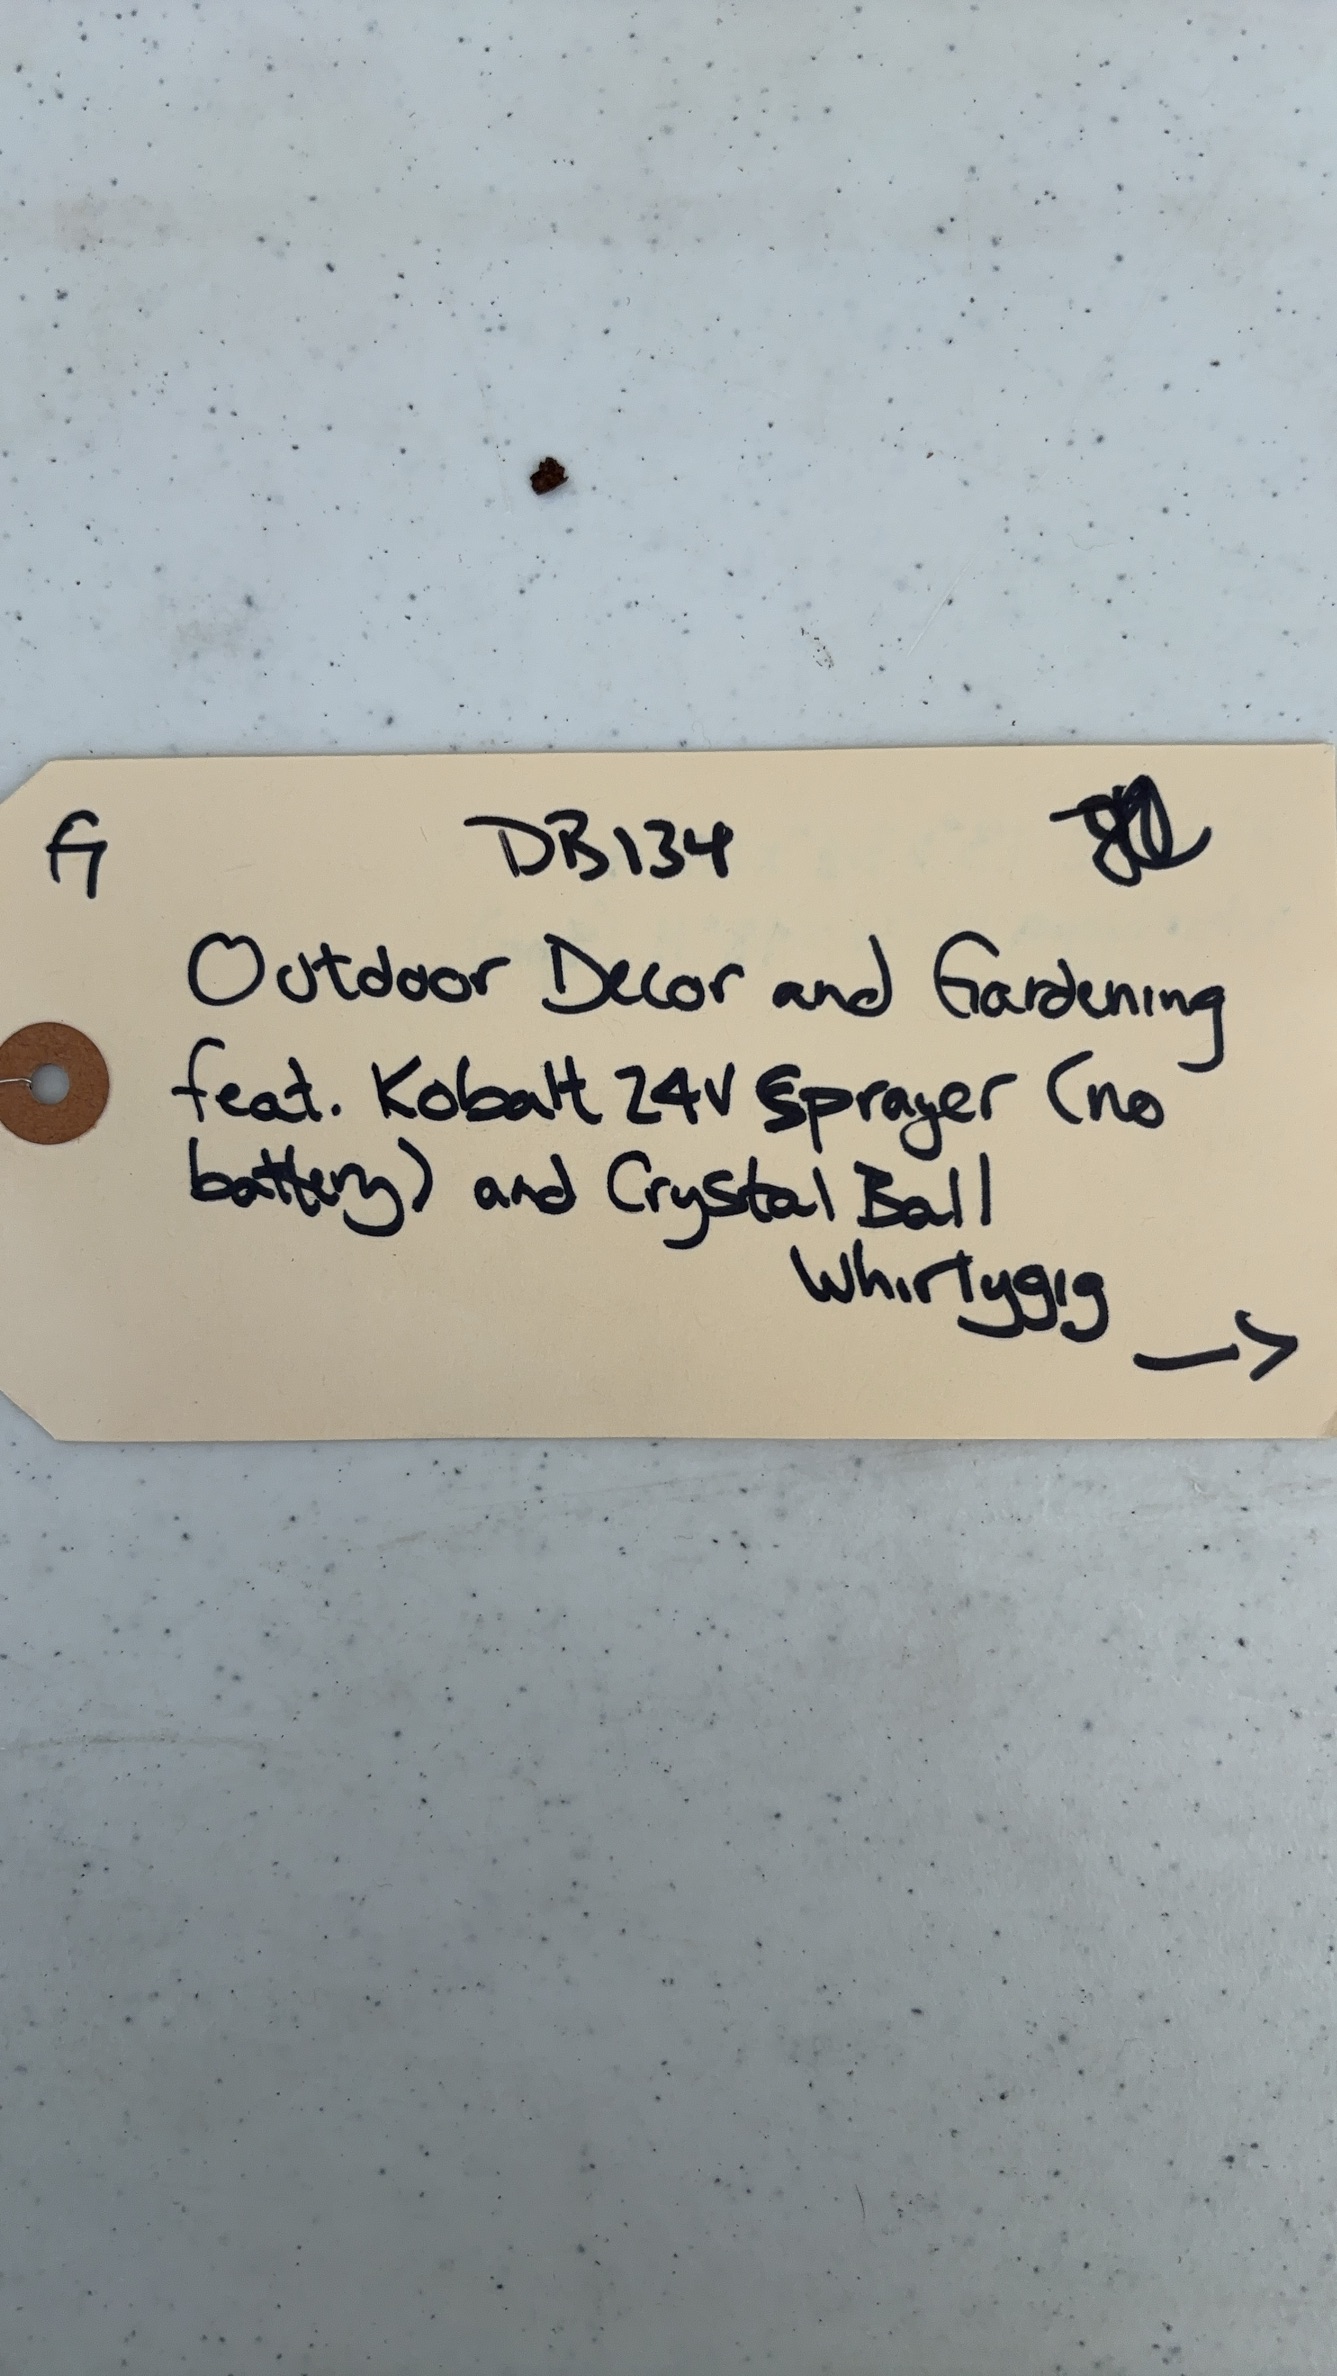 G DB134
Outdoor Decor and Gardening
feat. Kobalt 24V Sprayer (no
battery) and Crystal Ball
Whirlygig
→